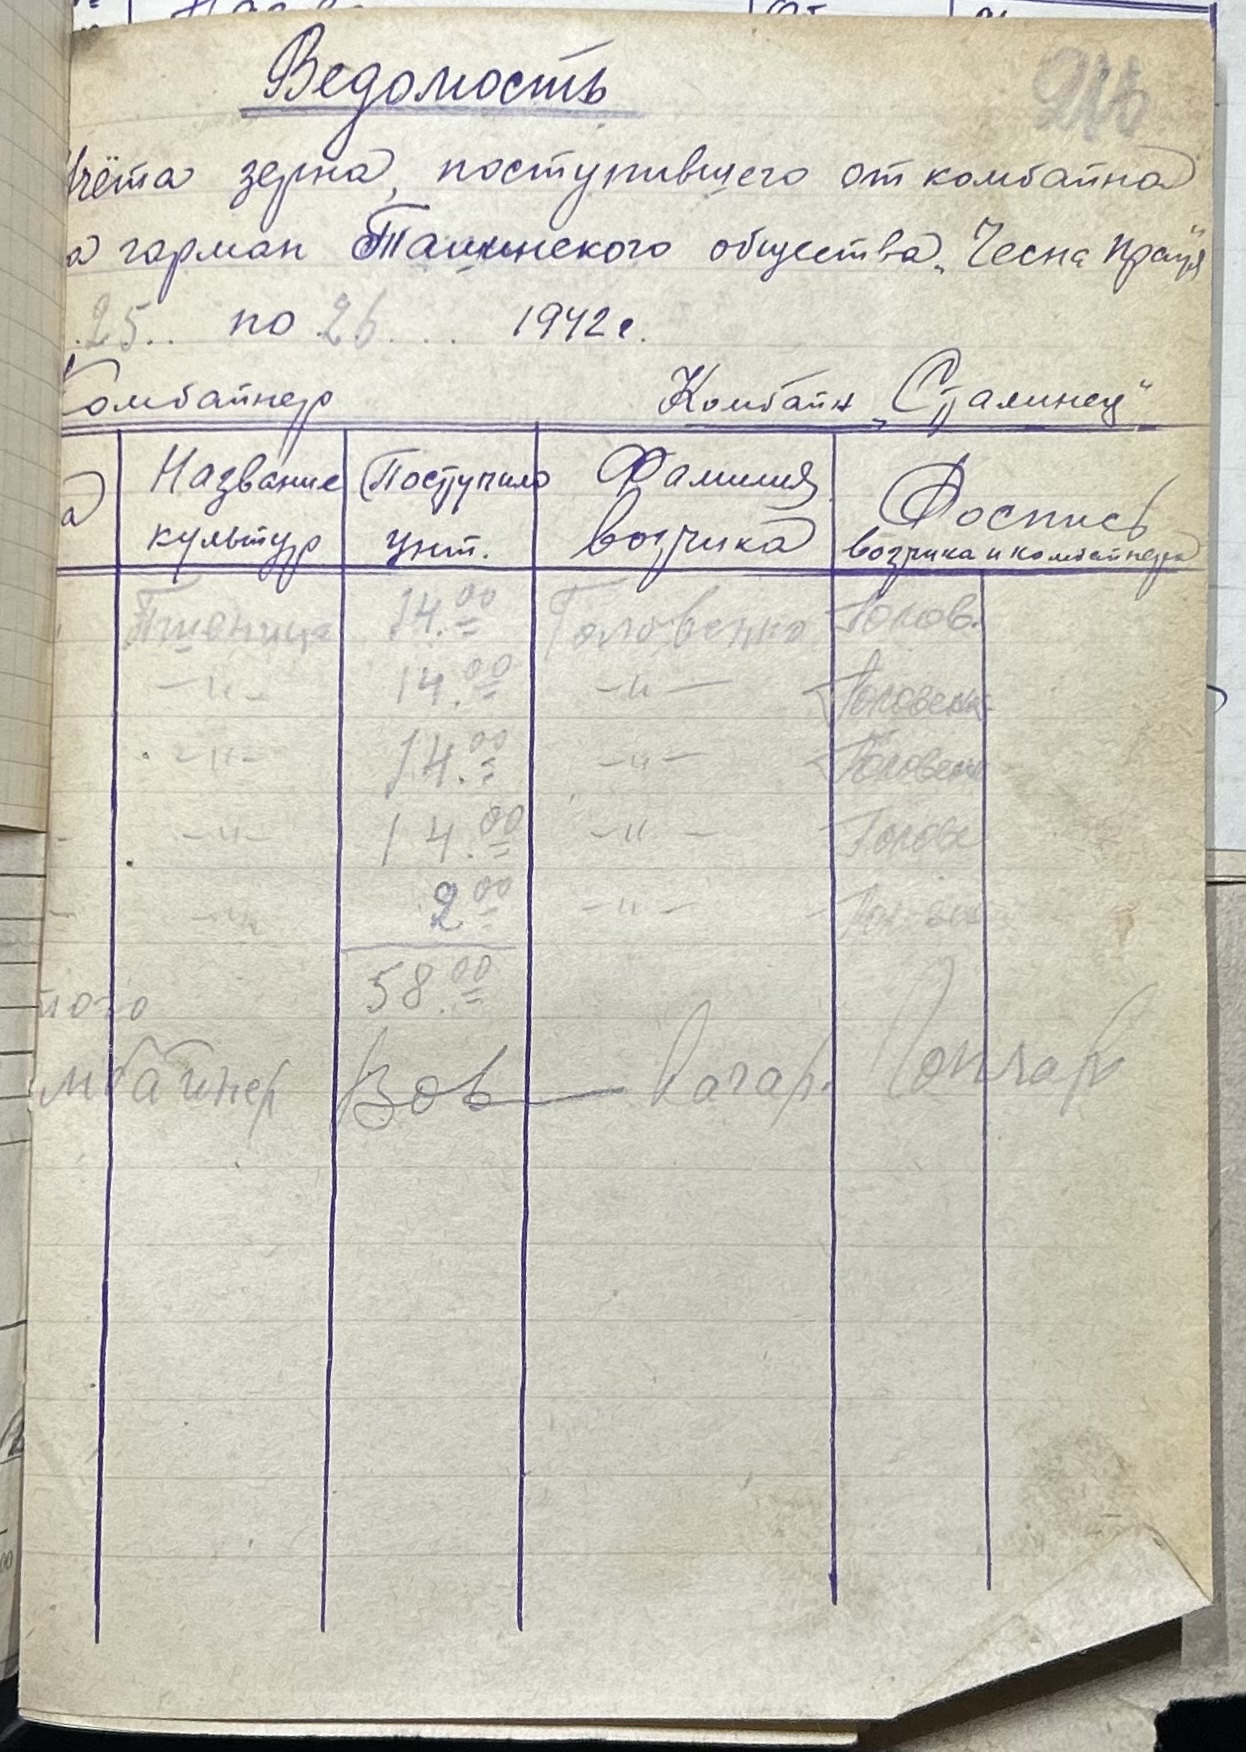 Ведомость
учёта зерна, поступившего от комбайна
а гарман общества „Чесна Праця"
25 по 26 1942 г.
Комбайнер Комбайн „Сталинец"
а Название культур Поступило Фамилия возчика Роспись возчика и комбайнера
Пшеница 14.00 Головенко Голов.
-"- 14.00 -"- Головенк
-"- 14.00 -"- Головенк
-"- 14.00 -"- Голове
-"- 2.00 -"-
того 58.00
мбайнер Вов Гончар